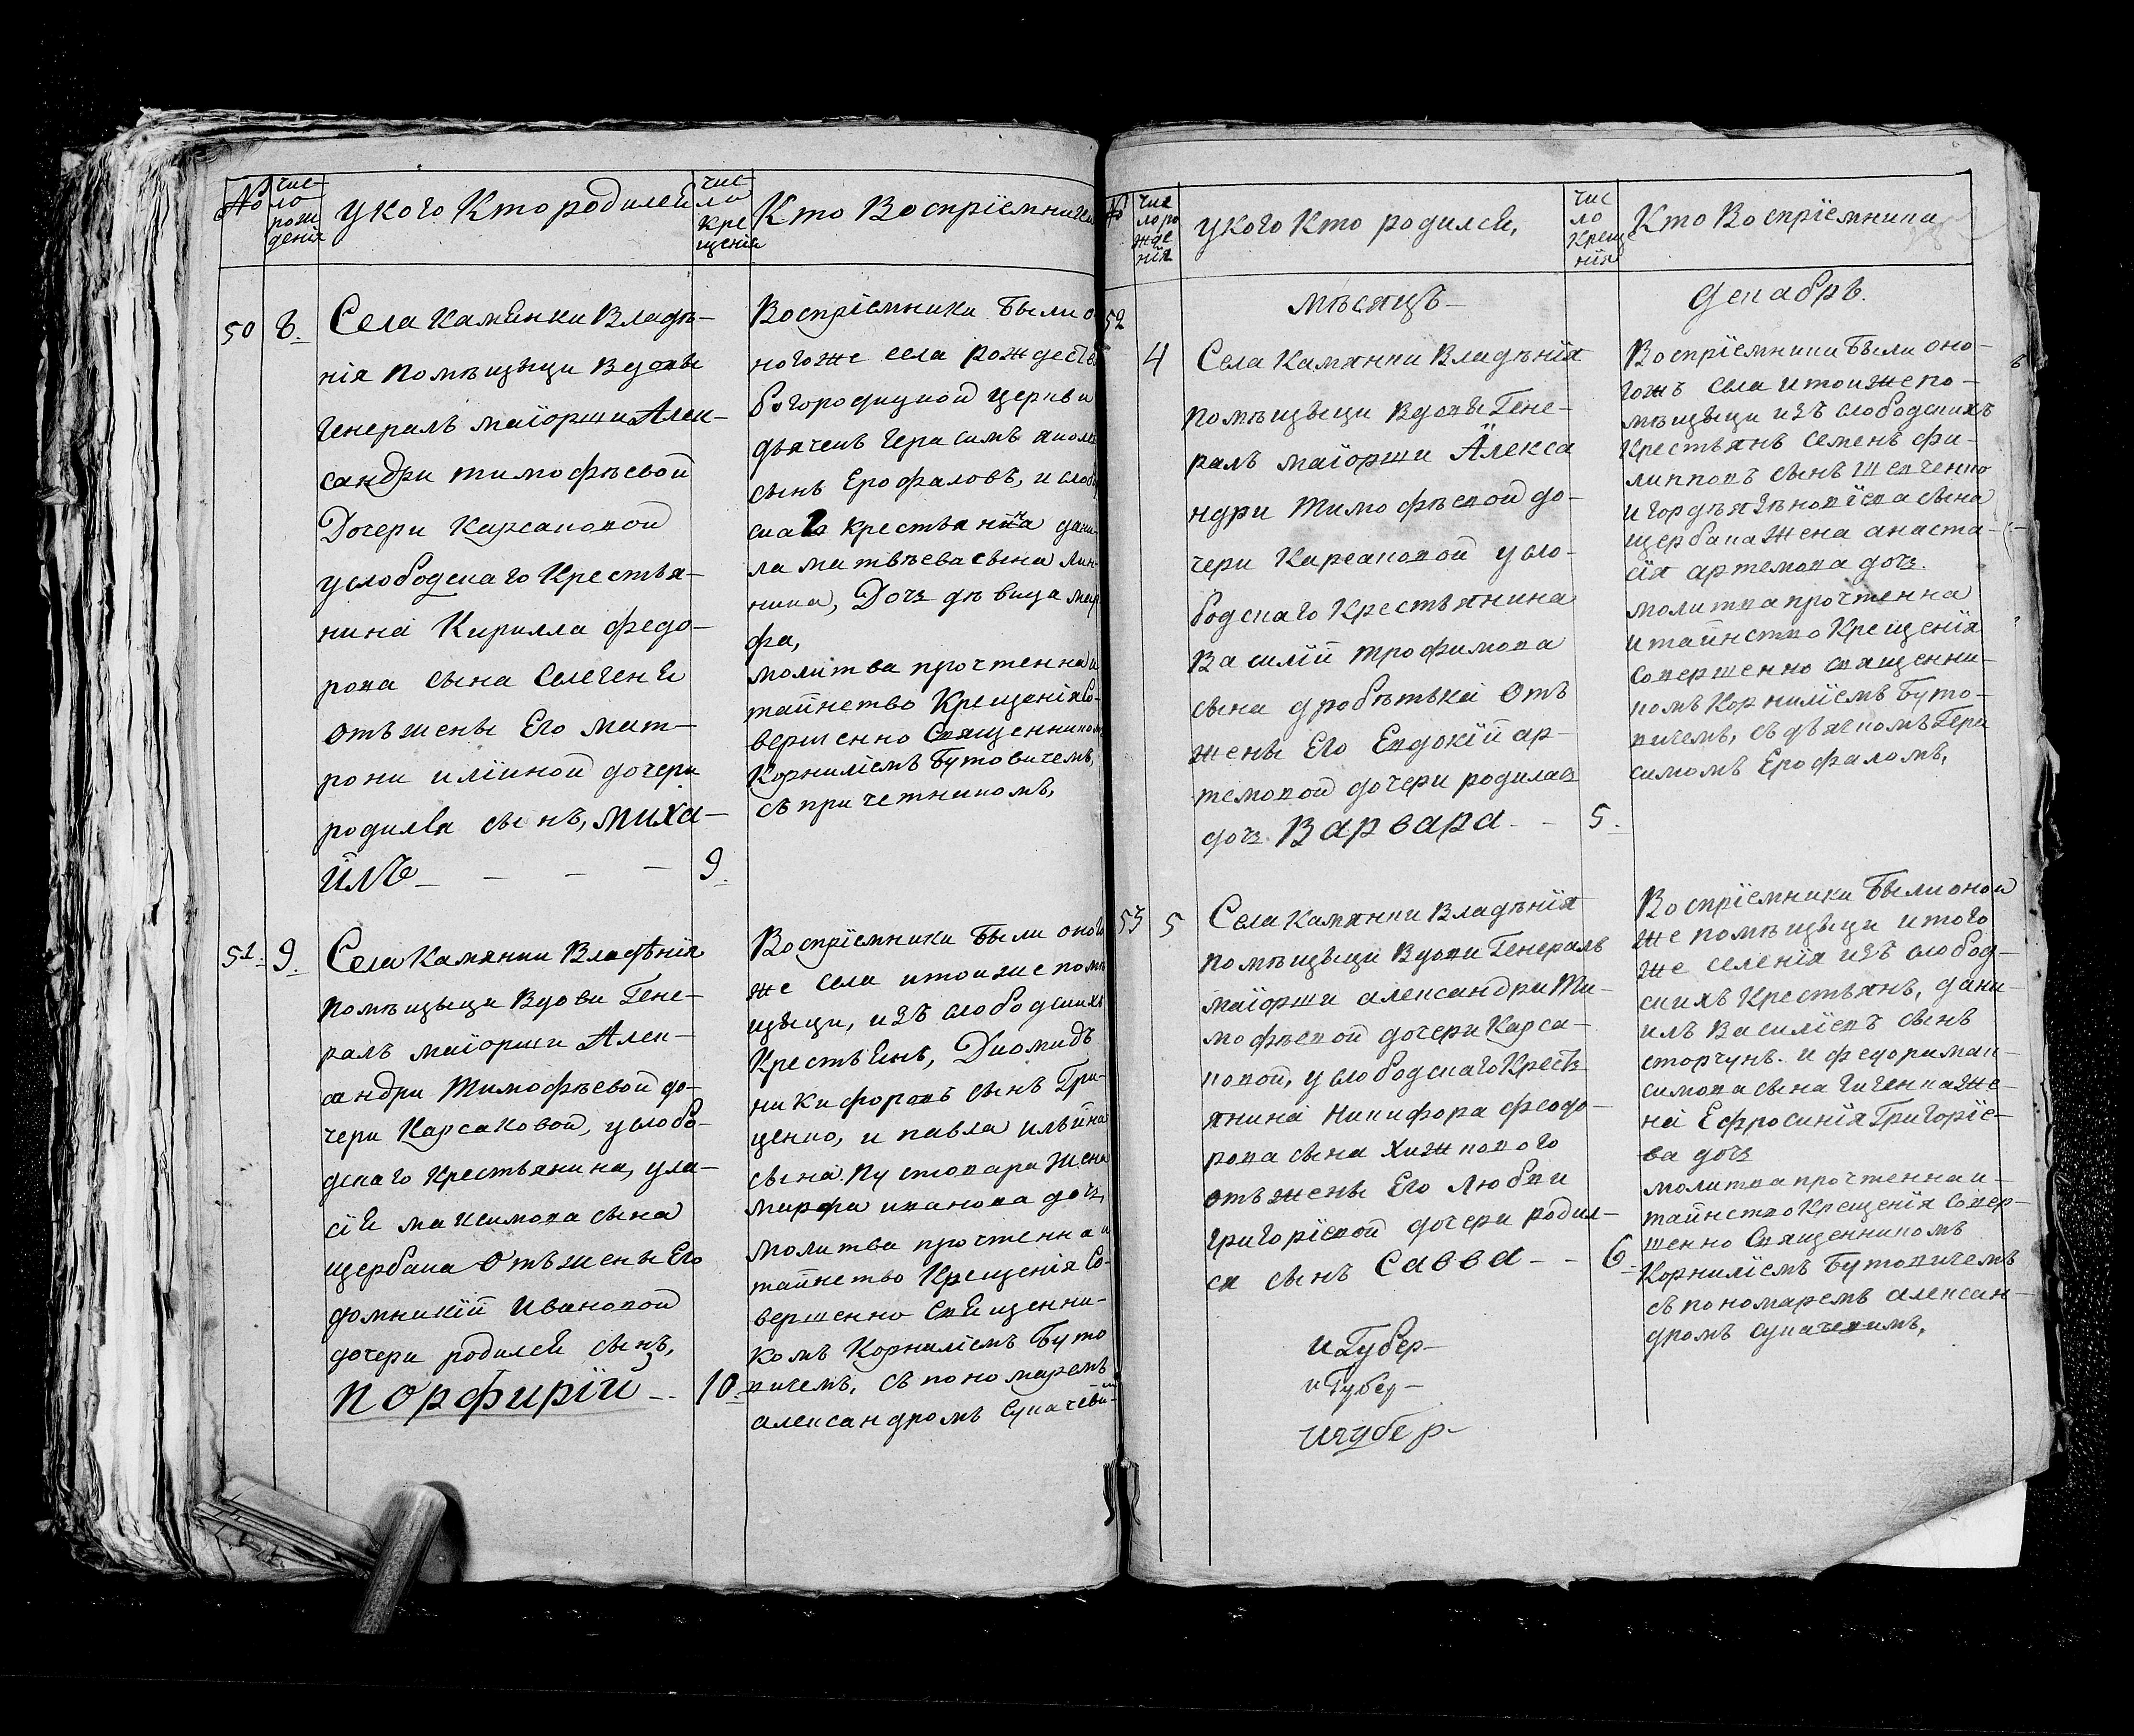 №
чис-
ло
рож
денія
у кого Кто родился
чис-
ло
Кре
щенія
Кто Воспріемники
50
8.
Села Камянки Владѣ-
нія помѣщыци Вдовы
Генералъ маіорши Алек-
сандри тимофѣевой
Дочери Карсаковой
у слободскаго Крестья-
нина Кирилла федо-
рова сына
отъ жены Его мат-
рони иліиной дочери
родился сынъ, миха-
илъ
9.
Воспріемники были о
ногоже села рождество
богородицкой церкви
дьячекъ Герасимъ
сынъ Ерофаловъ, и слобо
скаго крестьянина дани-
ла матвѣева сына
Дочъ дѣвица мар
фа,
молитва прочтенна и
таинство Крещенія Со-
вершенно Священникомъ
Корниліемъ Бутовичемъ,
съ причетникомъ,
51.
9.
Села Камянки Владѣнія
помѣщыци Вдови Гене-
ралъ маіорши Алек-
сандри Тимофѣевой до-
чери Карсаковой, у слобо-
дскаго Крестьянина, ула-
сія максимова сына
щербака отъ жены Его
домникій Ивановой
дочери родился сынъ,
порфирій
10.
Воспріемники были оного
же села и тоижѣ помѣ
щыци, изъ слободскихъ
Крестьянъ, Диомидъ
никифоровъ сынъ Гри-
ценко, и павла ильина
сына. Пустовара жена
марфа иванова дочъ,
молитва прочтенна и
таинство Крещенія Со-
вершенно Священни-
комъ Корниліемъ Буто
вичемъ, съ пономаремъ
александромъ
№
чис
ло ро
жде
нія
у кого Кто родился,
чис
ло
Креще
нія
Кто Воспріемники
мѣсяцъ
Декабрь.
52
4
Села Камянки Владѣнія
помѣщыци вдовы Гене-
ралъ маіорши Алекса
ндри Тимофѣевой до-
чери Карсаковой у сло-
бодскаго Крестьянина
Василій трофимова
сына дробѣтька отъ
жены Его Евдокій ар-
темовой дочери родилась
дочъ Варвара
5.
Воспріемники были оно-
гожъ села и тоиже по-
мѣщыци изъ слободскихъ
Крестьянъ семенъ фи-
липповъ сынъ шевченко
и гордѣя зѣновіева сына
щербака жена анаста-
сія артемова дочъ.
молитва прочтенна
и таинство Крещенія
Совершенно священни-
комъ Корниліемъ Буто-
вичемъ, съ дьячкомъ Гера
симомъ Ерофаломъ,
53
5
Села Камянки Владѣнія
помѣщыци Вдови Генералъ
маіорши александри Ти-
мофѣевой дочери Карса-
ковой, у слободскаго Кресть
янина Никифора феодо-
рова сына Хижкового
отъ жены Его Любви
григоріевой дочери родил-
ся сынъ Савва
6
Воспріемники были оной
же помѣщыци и того
же селенія изъ слобод-
скихъ Крестьянъ, дани-
илъ Василіевъ сынъ
сторчунъ. и федори мак-
симова сына гиченка же-
на Ефросинія Григоріе-
ва дочъ
молитва прочтенна и-
таинство Крещенія Совер-
шенно Священникомъ
Корниліемъ Бутовичемъ
съ пономаремъ алексан-
дромъ
и Губер-
и Губер-
и губер-